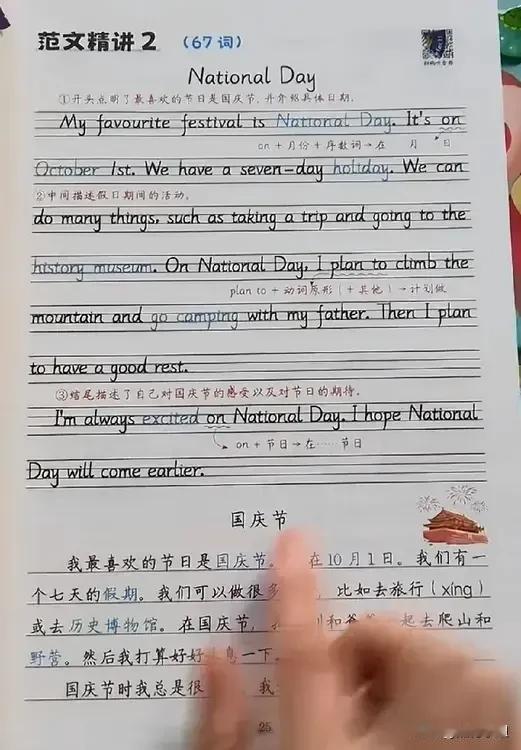 范文精讲2 （67词）
National Day
①开头点明了最喜欢的节日是国庆节,并介绍具体日期。
My favourite festival is National Day. It's on
on + 月份 + 序数词→在 月 日
October 1st. We have a seven-day holiday. We can
②中间描述假日期间的活动。
do many things, such as taking a trip and going to the
history museum. On National Day, I plan to climb the
plan to + 动词原形（+ 其他）→计划做
mountain and go camping with my father. Then I plan
to have a good rest.
③结尾描述了自己对国庆节的感受以及对节日的期待。
I'm always excited on National Day. I hope National
on + 节日→在……节日
Day will come earlier.
国庆节
我最喜欢的节日是国庆节。在10月1日。我们有一
个七天的假期。我们可以做很 比如去旅行（xíng）
或去历史博物馆。在国庆节， 和 起去爬山和
野营。然后我打算好好 息一下。
国庆节时我总是很 我
25